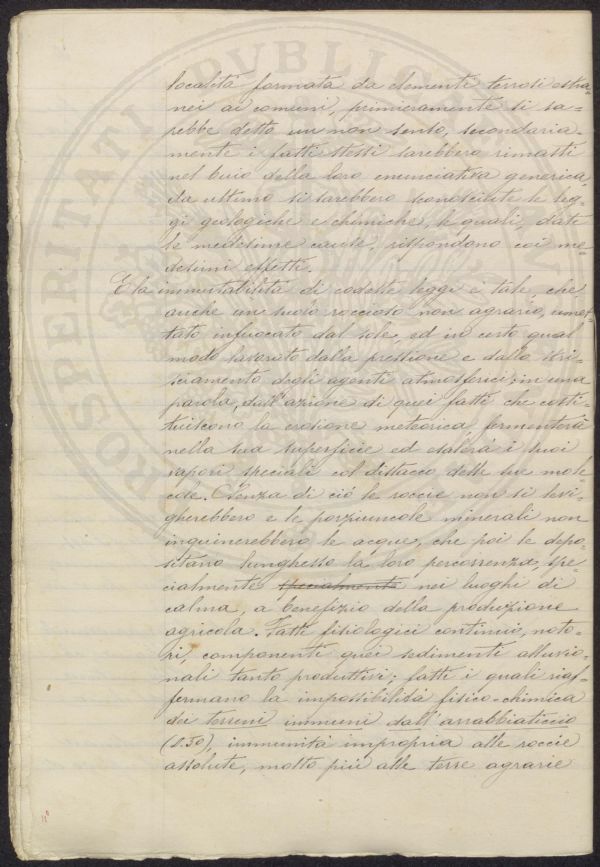 località formata da elementi terrosi estra-
nei ai comuni, primieramente si sa-
rebbe detto un non senso, secondaria-
mente i fatti stessi sarebbero rimasti
nel buio della loro enunciativa generica,
da ultimo si sarebbero sconosciute le leg-
gi geologiche e chimiche, le quali, date
le medesime cause, rispondono coi me-
desimi effetti.
E la immutabilità di codeste leggi è tale, che
anche un suolo roccioso non agrario, umet-
tato infuocato dal sole, ed in certo qual
modo lavorato dalla pressione e dallo stri-
sciamento degli agenti atmosferici; in una
parola, dall'azione di quei fatti che costi-
tuiscono la erosione meteorica, fermenterà
nella sua superficie ed esalerà i suoi
vapori speciali col distacco delle sue mole-
cole. Senza di ciò le roccie non si levi-
gherebbero e le porziuncole minerali non
inquinerebbero le acque, che poi le depo-
sitano lunghesso la loro percorrenza, spe-
cialmente specialmente nei luoghi di
calma, a benefizio della produzione
agricola. Fatti fisiologici continui, noto-
ri, componenti quei sedimenti alluvio-
nali tanto produttivi; fatti i quali riaf-
fermano la impossibilità fisico-chimica
dei terreni immuni dall'arrabbiaticcio
(§.50), immunità impropria alle roccie
assolute, molto più alle terre agrarie
PROSPERITATI PVBLICAE